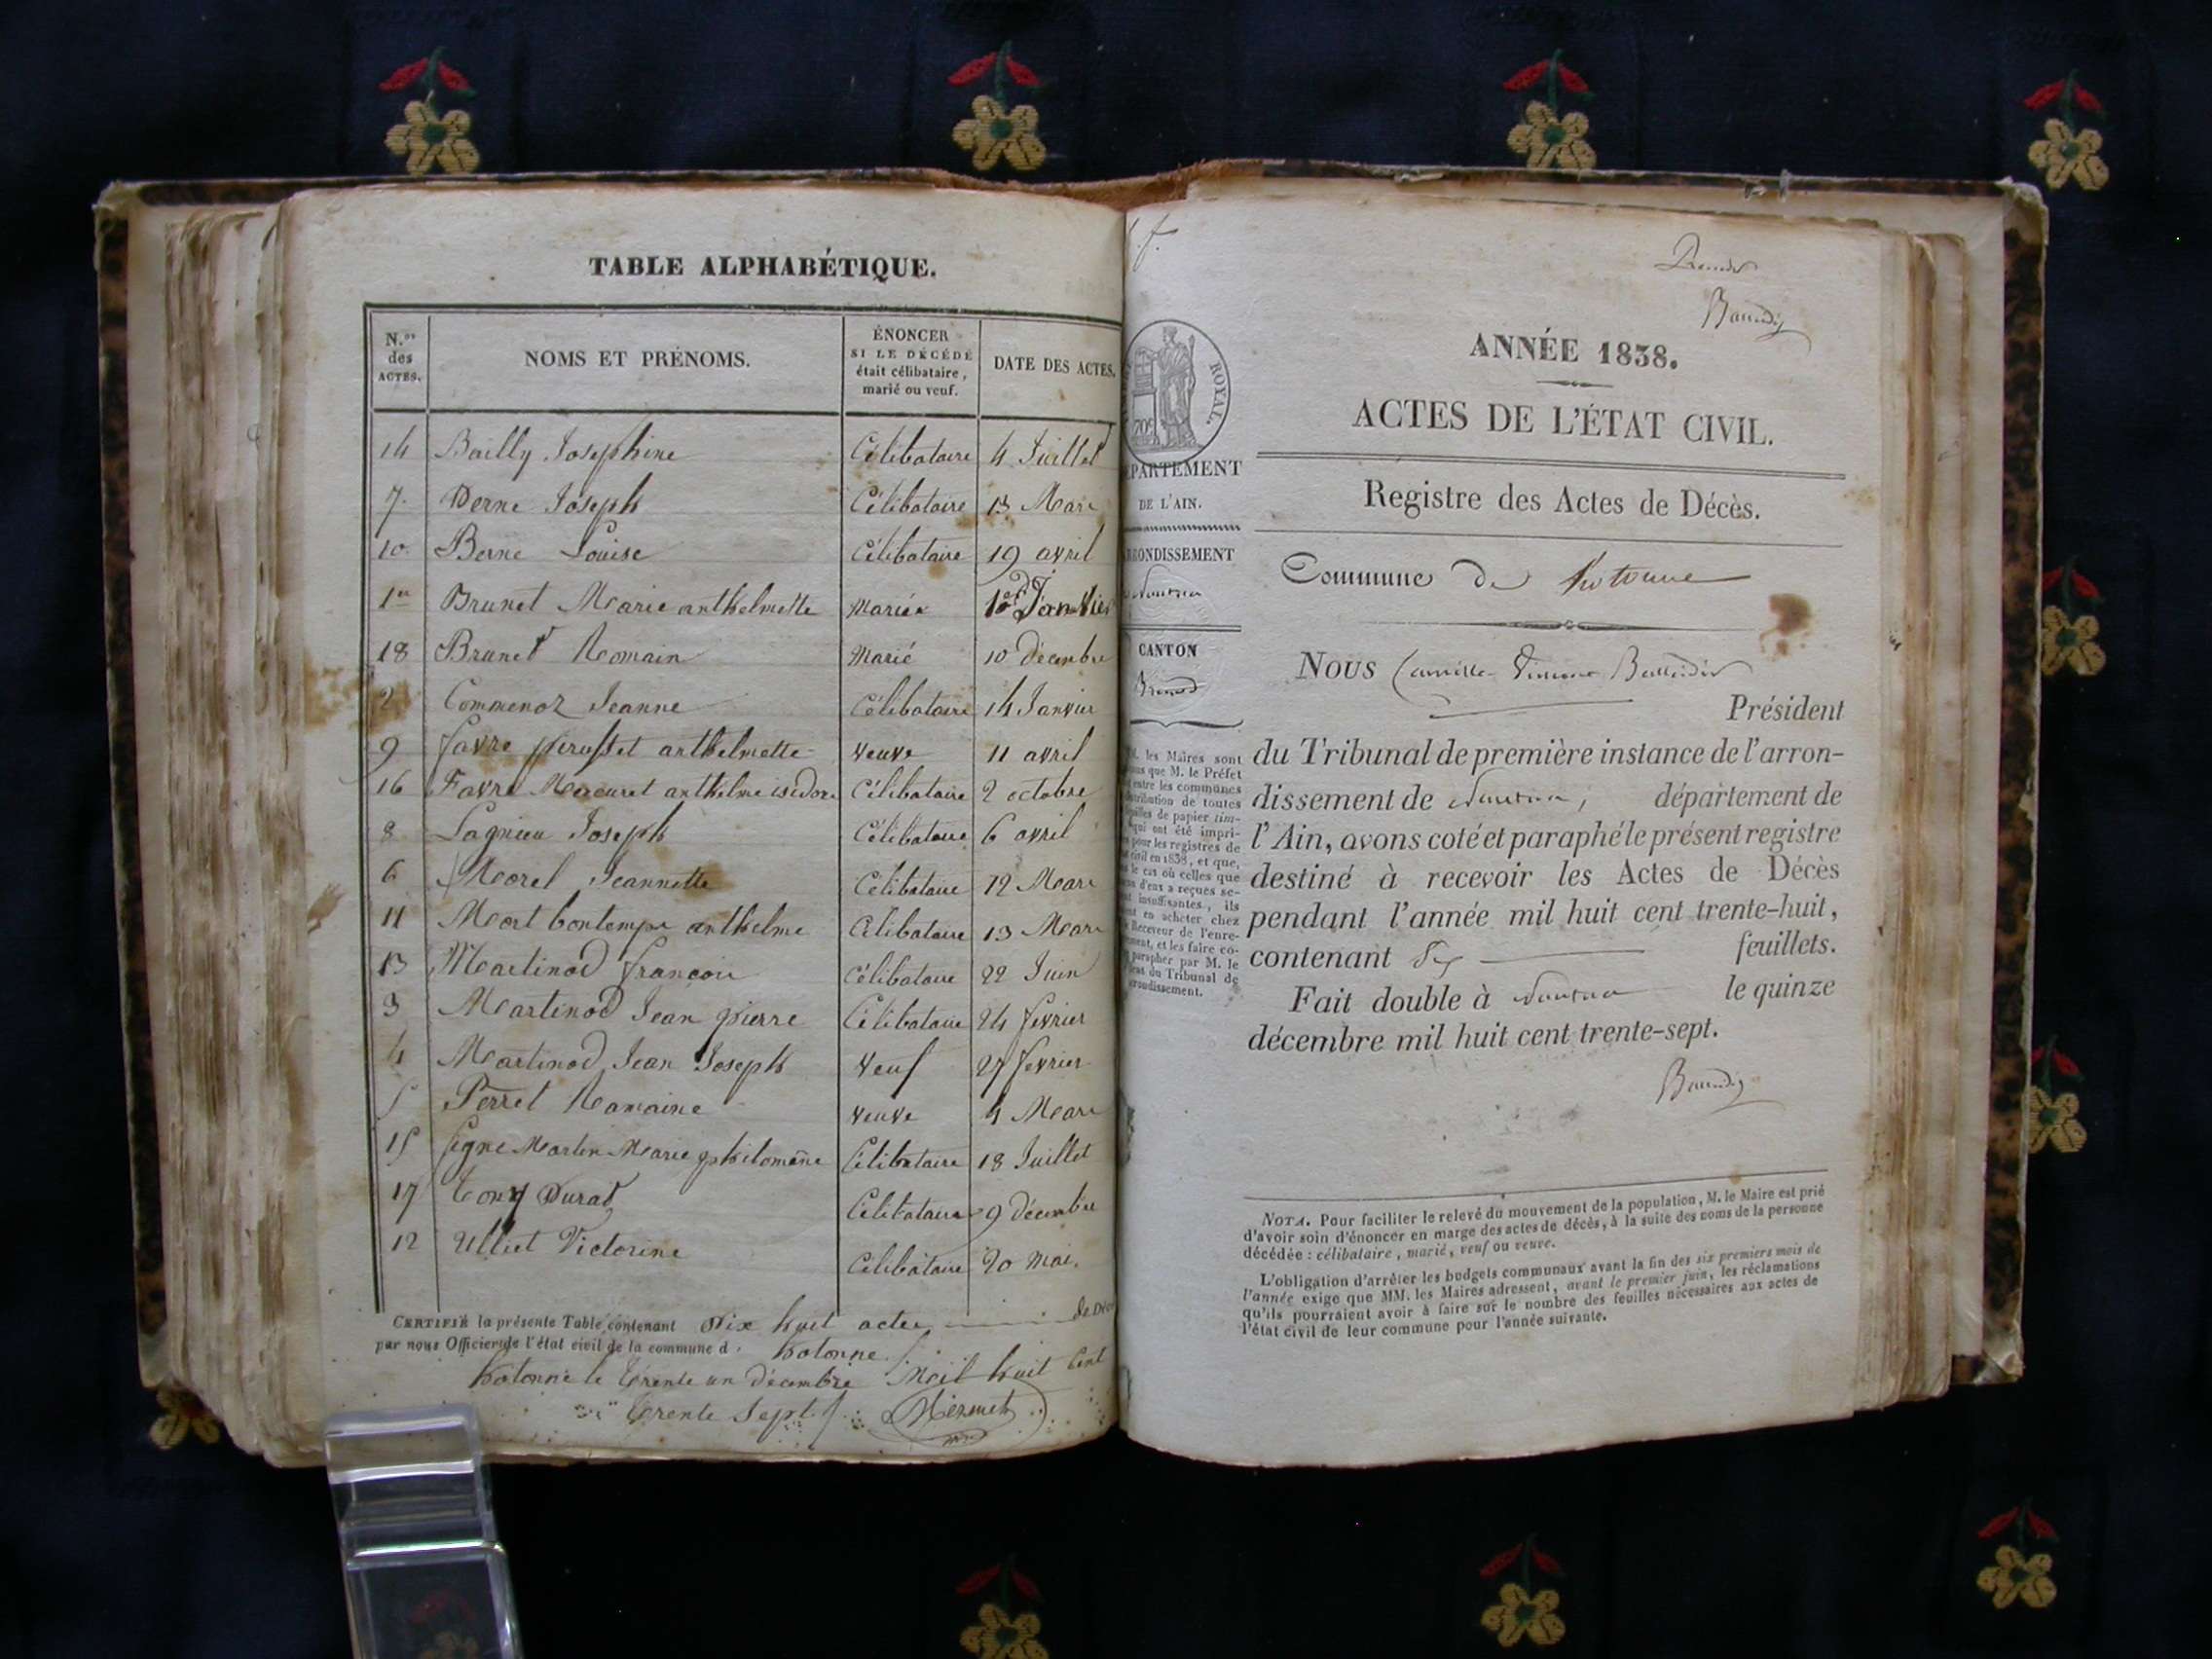 TABLE ALPHABÉTIQUE.
N.os des ACTES.
NOMS ET PRÉNOMS.
ÉNONCER SI LE DÉCÉDÉ était célibataire, marié ou veuf.
DATE DES ACTES.
14 Bailly Josephine Célibataire 4 Juillet
7. Berne Joseph Célibataire 13 Mars
10. Berne Louise Célibataire 19 avril
1er Brunet Marie anthelmette Mariée 10 Janvier
18 Brunet Romain Marié 10 décembre
2 Commenoz Jeanne Célibataire 14 Janvier
9 favre perusset anthelmette veuve 11 avril
16 Favre Mercuret anthelme isidore Célibataire 2 octobre
8 Lagnieu Joseph Célibataire 6 avril
6 Morel Jeannette Célibataire 12 Mars
11 Mort bontemps anthelme Célibataire 13 Mars
13 Martinod françois Célibataire 22 Juin
3 Martinod Jean pierre Célibataire 24 février
4 Martinod Jean Joseph veuf 27 février
5 Perret Romaine veuve 4 Mars
15 Martin Marie philomène Célibataire 18 Juillet
17 Tony Durat Célibataire 9 décembre
12 Ulliet Victorine Célibataire 20 Mai.
CERTIFIÉ la présente Table contenant Dix huit actes de Déc
par nous Officier de l'état civil de la commune d' hotonne
hotonne le trente un décembre Mil huit Cent
trente Sept
ANNÉE 1838.
ACTES DE L'ÉTAT CIVIL.
ROYAL.
70c
DÉPARTEMENT
DE L'AIN.
Registre des Actes de Décès.
ARRONDISSEMENT
Nantua
Commune de hotonne
CANTON
Brénod
Nous Camille
Président
du Tribunal de première instance de l'arron-
dissement de Nantua, département de
l'Ain, avons coté et paraphé le présent registre
destiné à recevoir les Actes de Décès
pendant l'année mil huit cent trente-huit,
contenant feuillets.
Fait double à Nantua le quinze
décembre mil huit cent trente-sept.
M. les Maires sont
que M. le Préfet
entre les communes
distribution de toutes
feuilles de papier tim-
qui ont été impri-
pour les registres de
civil en 1838, et que,
le cas où celles que
d'eux a reçues se-
insuffisantes, ils
en acheter chez
Receveur de l'enre-
et les faire co-
parapher par M. le
du Tribunal de
arrondissement.
NOTA. Pour faciliter le relevé du mouvement de la population, M. le Maire est prié
d'avoir soin d'énoncer en marge des actes de décès, à la suite des noms de la personne
décédée : célibataire, marié, veuf ou veuve.
L'obligation d'arrêter les budgets communaux avant la fin des six premiers mois de
l'année exige que MM. les Maires adressent, avant le premier juin, les réclamations
qu'ils pourraient avoir à faire sur le nombre des feuilles nécessaires aux actes de
l'état civil de leur commune pour l'année suivante.